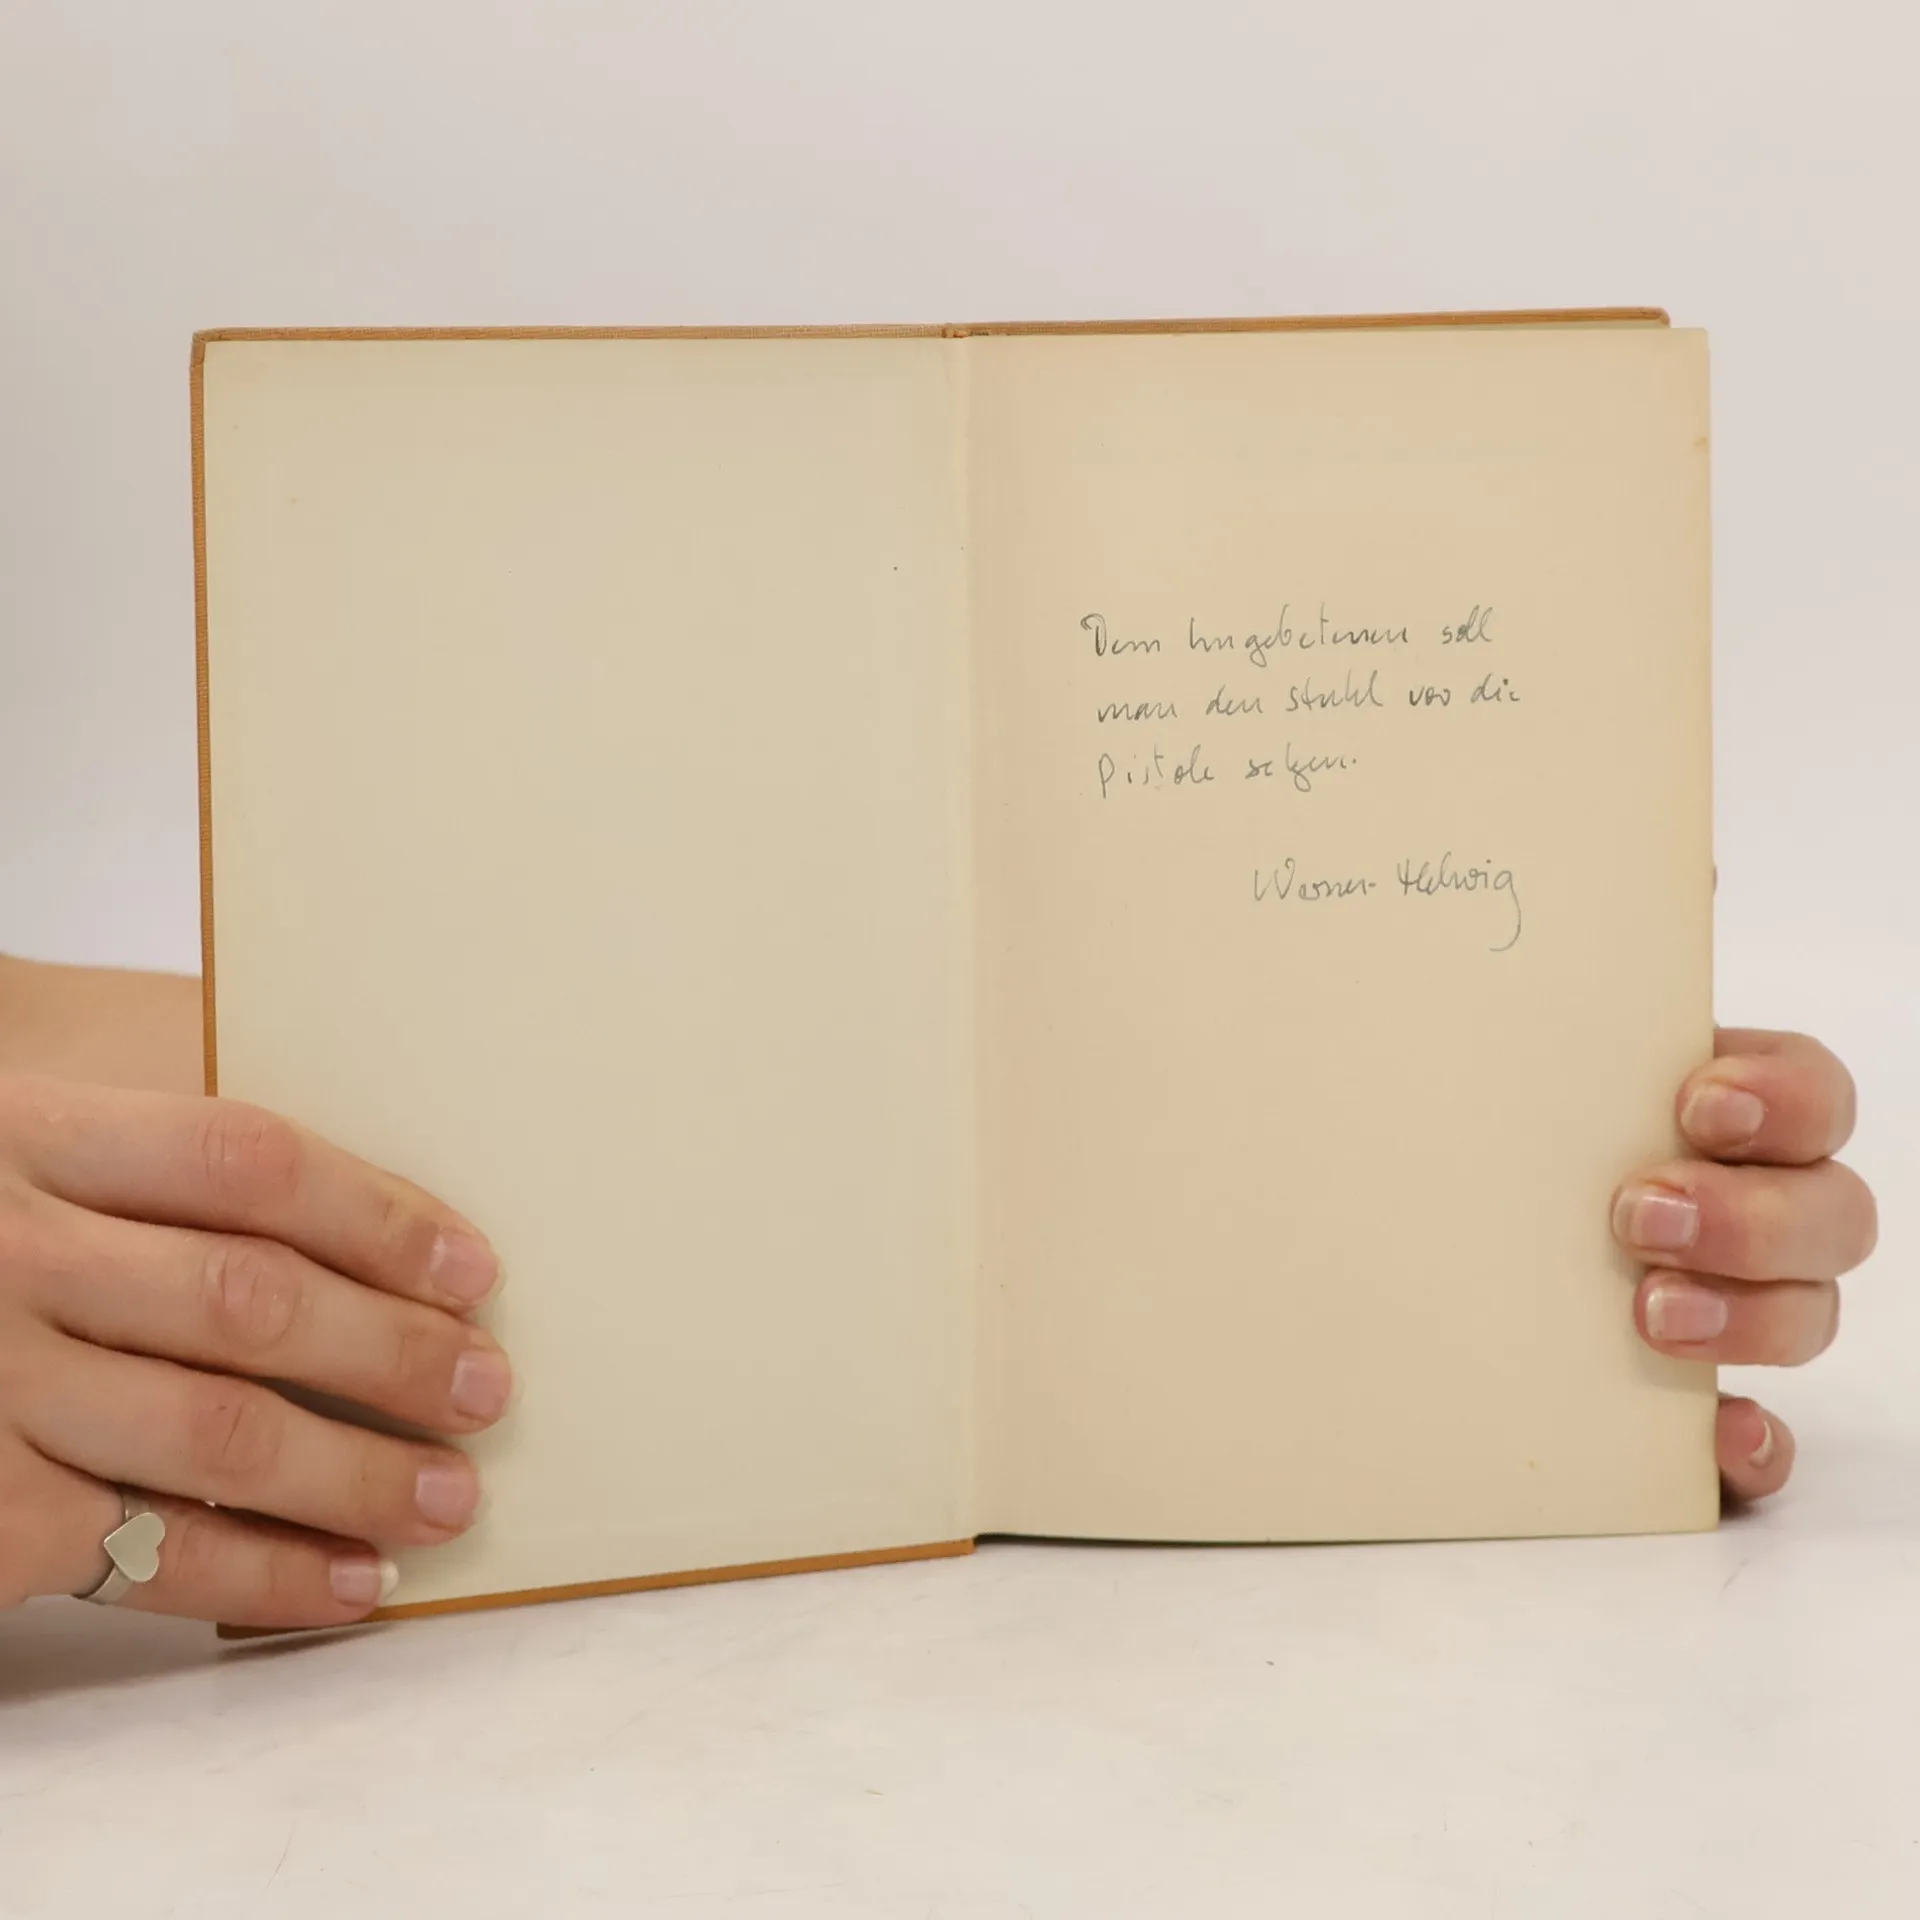 Dem Ungebetenen soll
man den Stuhl vor die
Pistole setzen.
Werner Helwig